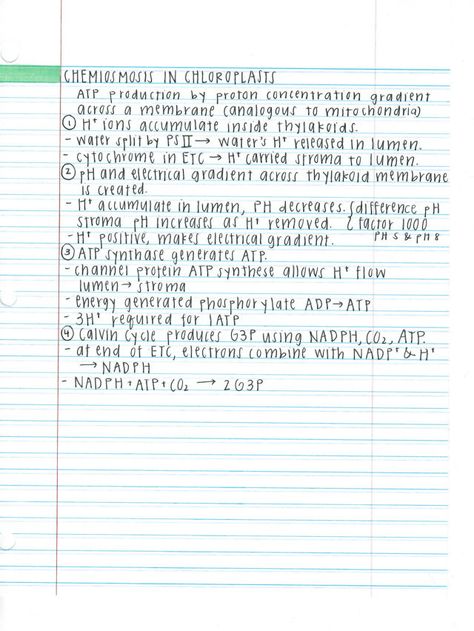 CHEMIOSMOSIS IN CHLOROPLASTS
ATP production by proton concentration gradient
across a membrane (analogous to mitochondria)
① H⁺ ions accumulate inside thylakoids.
- water split by PSII → water's H⁺ released in lumen.
- cytochrome in ETC → H⁺ carried stroma to lumen.
② pH and electrical gradient across thylakoid membrane
is created.
- H⁺ accumulate in lumen, PH decreases. { difference pH
stroma pH increases as H⁺ removed. { factor 1000
- H⁺ positive, makes electrical gradient. PH 5 & PH 8
③ ATP synthase generates ATP.
- channel protein ATP synthese allows H⁺ flow
lumen → stroma
- energy generated phosphorylate ADP → ATP
- 3H⁺ required for 1ATP
④ Calvin Cycle produces G3P using NADPH, CO₂, ATP.
- at end of ETC, electrons combine with NADP⁺ & H⁺
→ NADPH
- NADPH + ATP + CO₂ → 2G3P